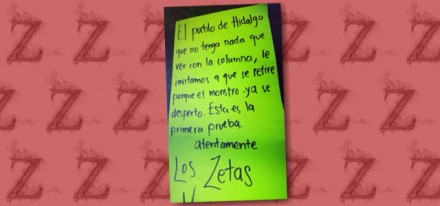 El pueblo de Hidalgo
que no tenga nada que
ver con la columna, le
invitamos a que se retire
porque el monstro ya se
desperto. Esta es la
primera prueba.
atentamente
Los Zetas
Z Z Z Z
Z Z Z
Z Z Z Z